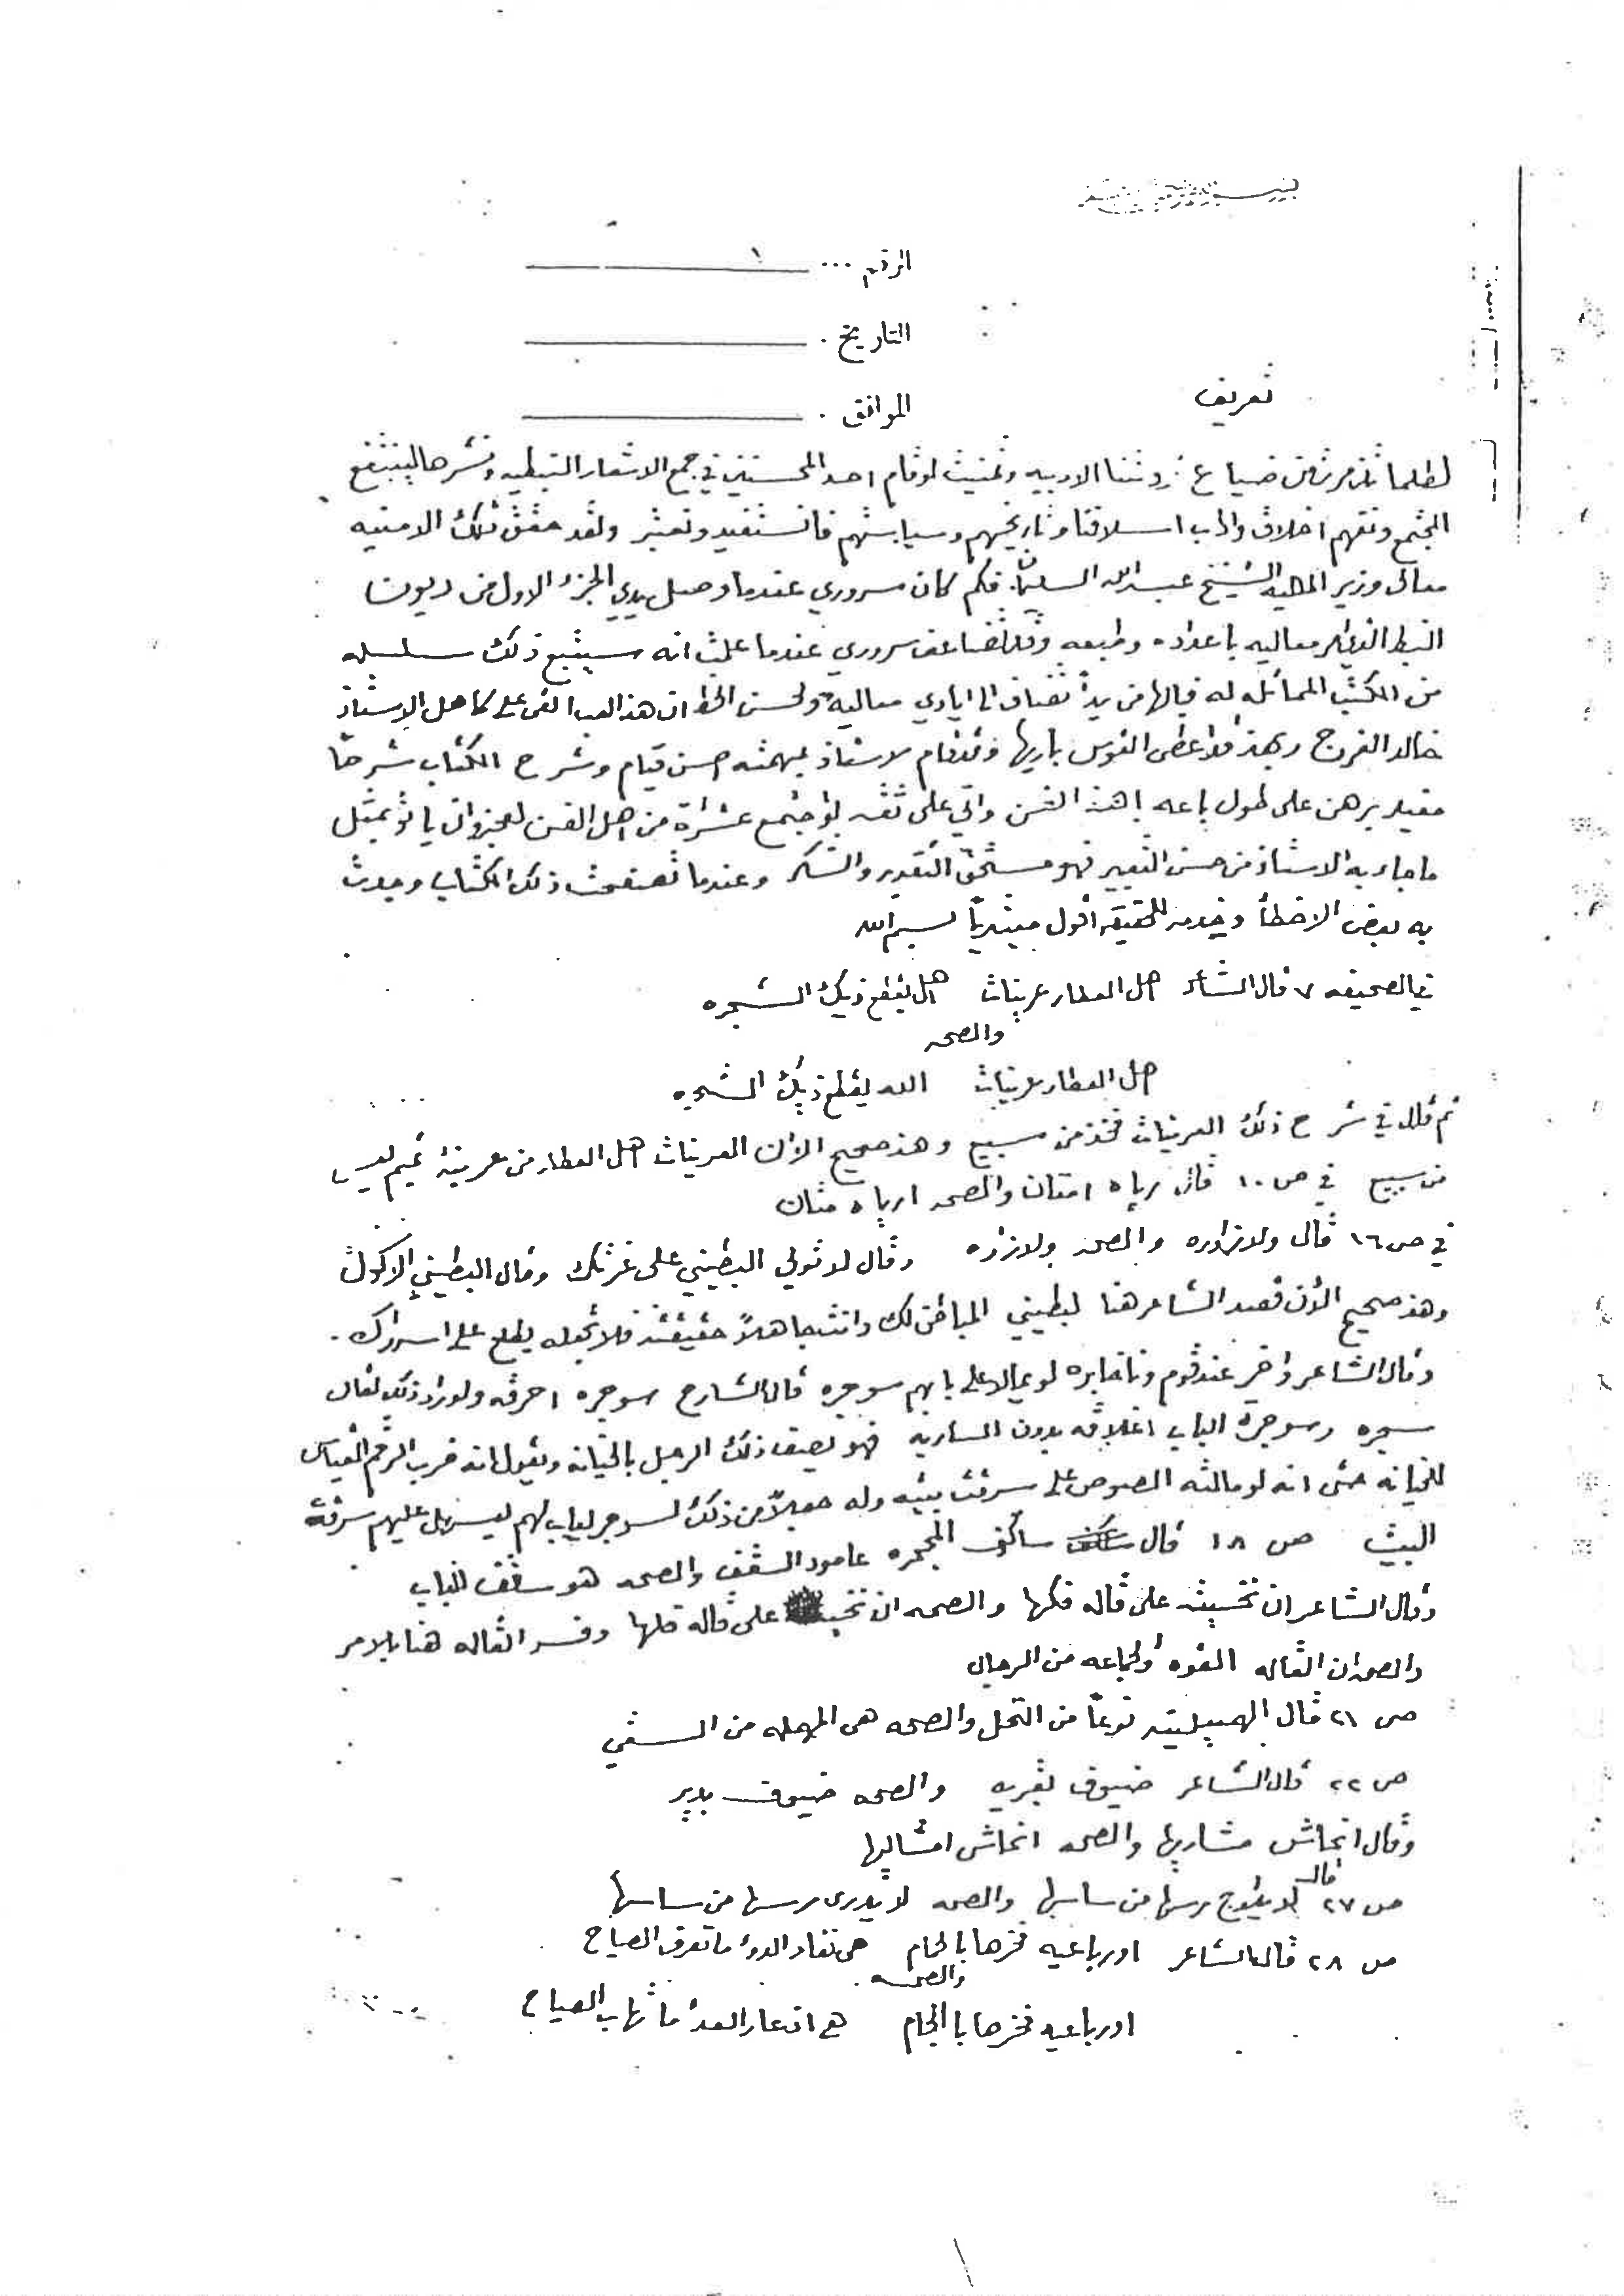 الرقم ... ١
التاريخ .
الموافق .
تعريف
لطلما تذمرت من ضياع ثروتنا الادبيه وتمنيت لو قام احد المحسنين في جمع الاشعار النبطيه ونشرها لينتفع
المجتمع ونفهم اخلاق واداب اسلافنا وتاريخهم وسياستهم فانستفيد ونعتبر ولقد حقق تلك الامنيه
معالى وزير الماليه الشيخ عبدالله السليمان فكم كان سروري عندما وصل بيدي الجزء الاول من ديون
النبط الذي امر معاليه باعداده وطبعه وقد تضاعف سروري عندما علمت انه سيتبع ذلك سلسله
من الكتب المماثله له فيالها من يداً تضاف الا ايادي معاليه ولحسن الحظ ان هذ العب القى على كاهل الاستاذ
خالد الفرج وبهذ قد اعطى القوس باريها وقد قام لاستاذ بمهمته احسن قيام وشرح الكتاب شرحاً
مفيد برهن على طول باعه باهذ الفن واني على ثقه لو اجتمع عشرة من اهل الفن لعجزو ان ياتو بمثل
ما جاء به الاستاذ من حسن التعبير فهو مستحق التقدير والشكر وعندما تصفحت ذلك الكتاب وجدت
به بعض الاخطأ وخدمه للحقيقه أقول مبتدياً بسم الله
في الصحيفه ٧ قال الشاعر اهل العطار عرينات اهل يقطع ذيك الشجره
والصحه
اهل العطار عرينات الله يقطع ذيك الشجره
ثم قال في شرح ذلك العرينات فخذ من سبيع وهذ صحيح الأان العرينات اهل العطار من عرينة تميم ليس
من سبيع في ص ١٠ قال رباه امتان والصحه ارباه متان
في ص ١٦ قال ولا تزاوره والصحه ولا تزاره وقال لا تولي البطيني على غرتك وقال البطيني الاكول
وهذ صحيح الأان قصد الشاعر هنا لبطيني المباطن لك وانت جاهلاً حقيقته فلا تجعله يطلع على اسرارك .
وقال الشاعر واخير عند قوم وتا خابره لو عيالا على بابهم سوجره قال الشارح سوجره احرقه ولو اراد ذلك لقال
سجره وسوجرة الباب اغلاقه بدون المساريه فهو يصف ذلك الرجل بالخيانه ويقول انه ضرب الرقم القياس
للخيانه حتى انه لو مالته الصوص على سرقت بيته وله جعيلاً من ذلك لسوجر لباب لهم ليسهل عليهم سرقة
البيت ص ١٨ قال ساكف المجمره عامود السقف والصحه هو سقف للباب
وقال الشاعر ان تخسيته على قاله فكها والصحه ان تخيته على قاله قلها وفسر القاله هنا بالامر
والصحه ان القاله القوه ولجماعه من الرجال
ص ٢١ قال الهميليه نوعاً من النخل والصحه هى المهمله من السقي
ص ٢٢ قال الشاعر ضيوف بقريه والصحه ضيوف بدير
وقال انحاش مشاريها والصحه انحاش امشاليها
ص ٢٧ قال لا يفوج مرسها من ساسها والصحه لا يدرى مرسها من ساسها
ص ٢٨ قال الشاعر اورباعيه فخرها بالجام هى نقاد الدو ما تعرف الصياح
والصحه
اورباعيه فخرها با الجام هى انذعار العدو ما تهاب الصياح